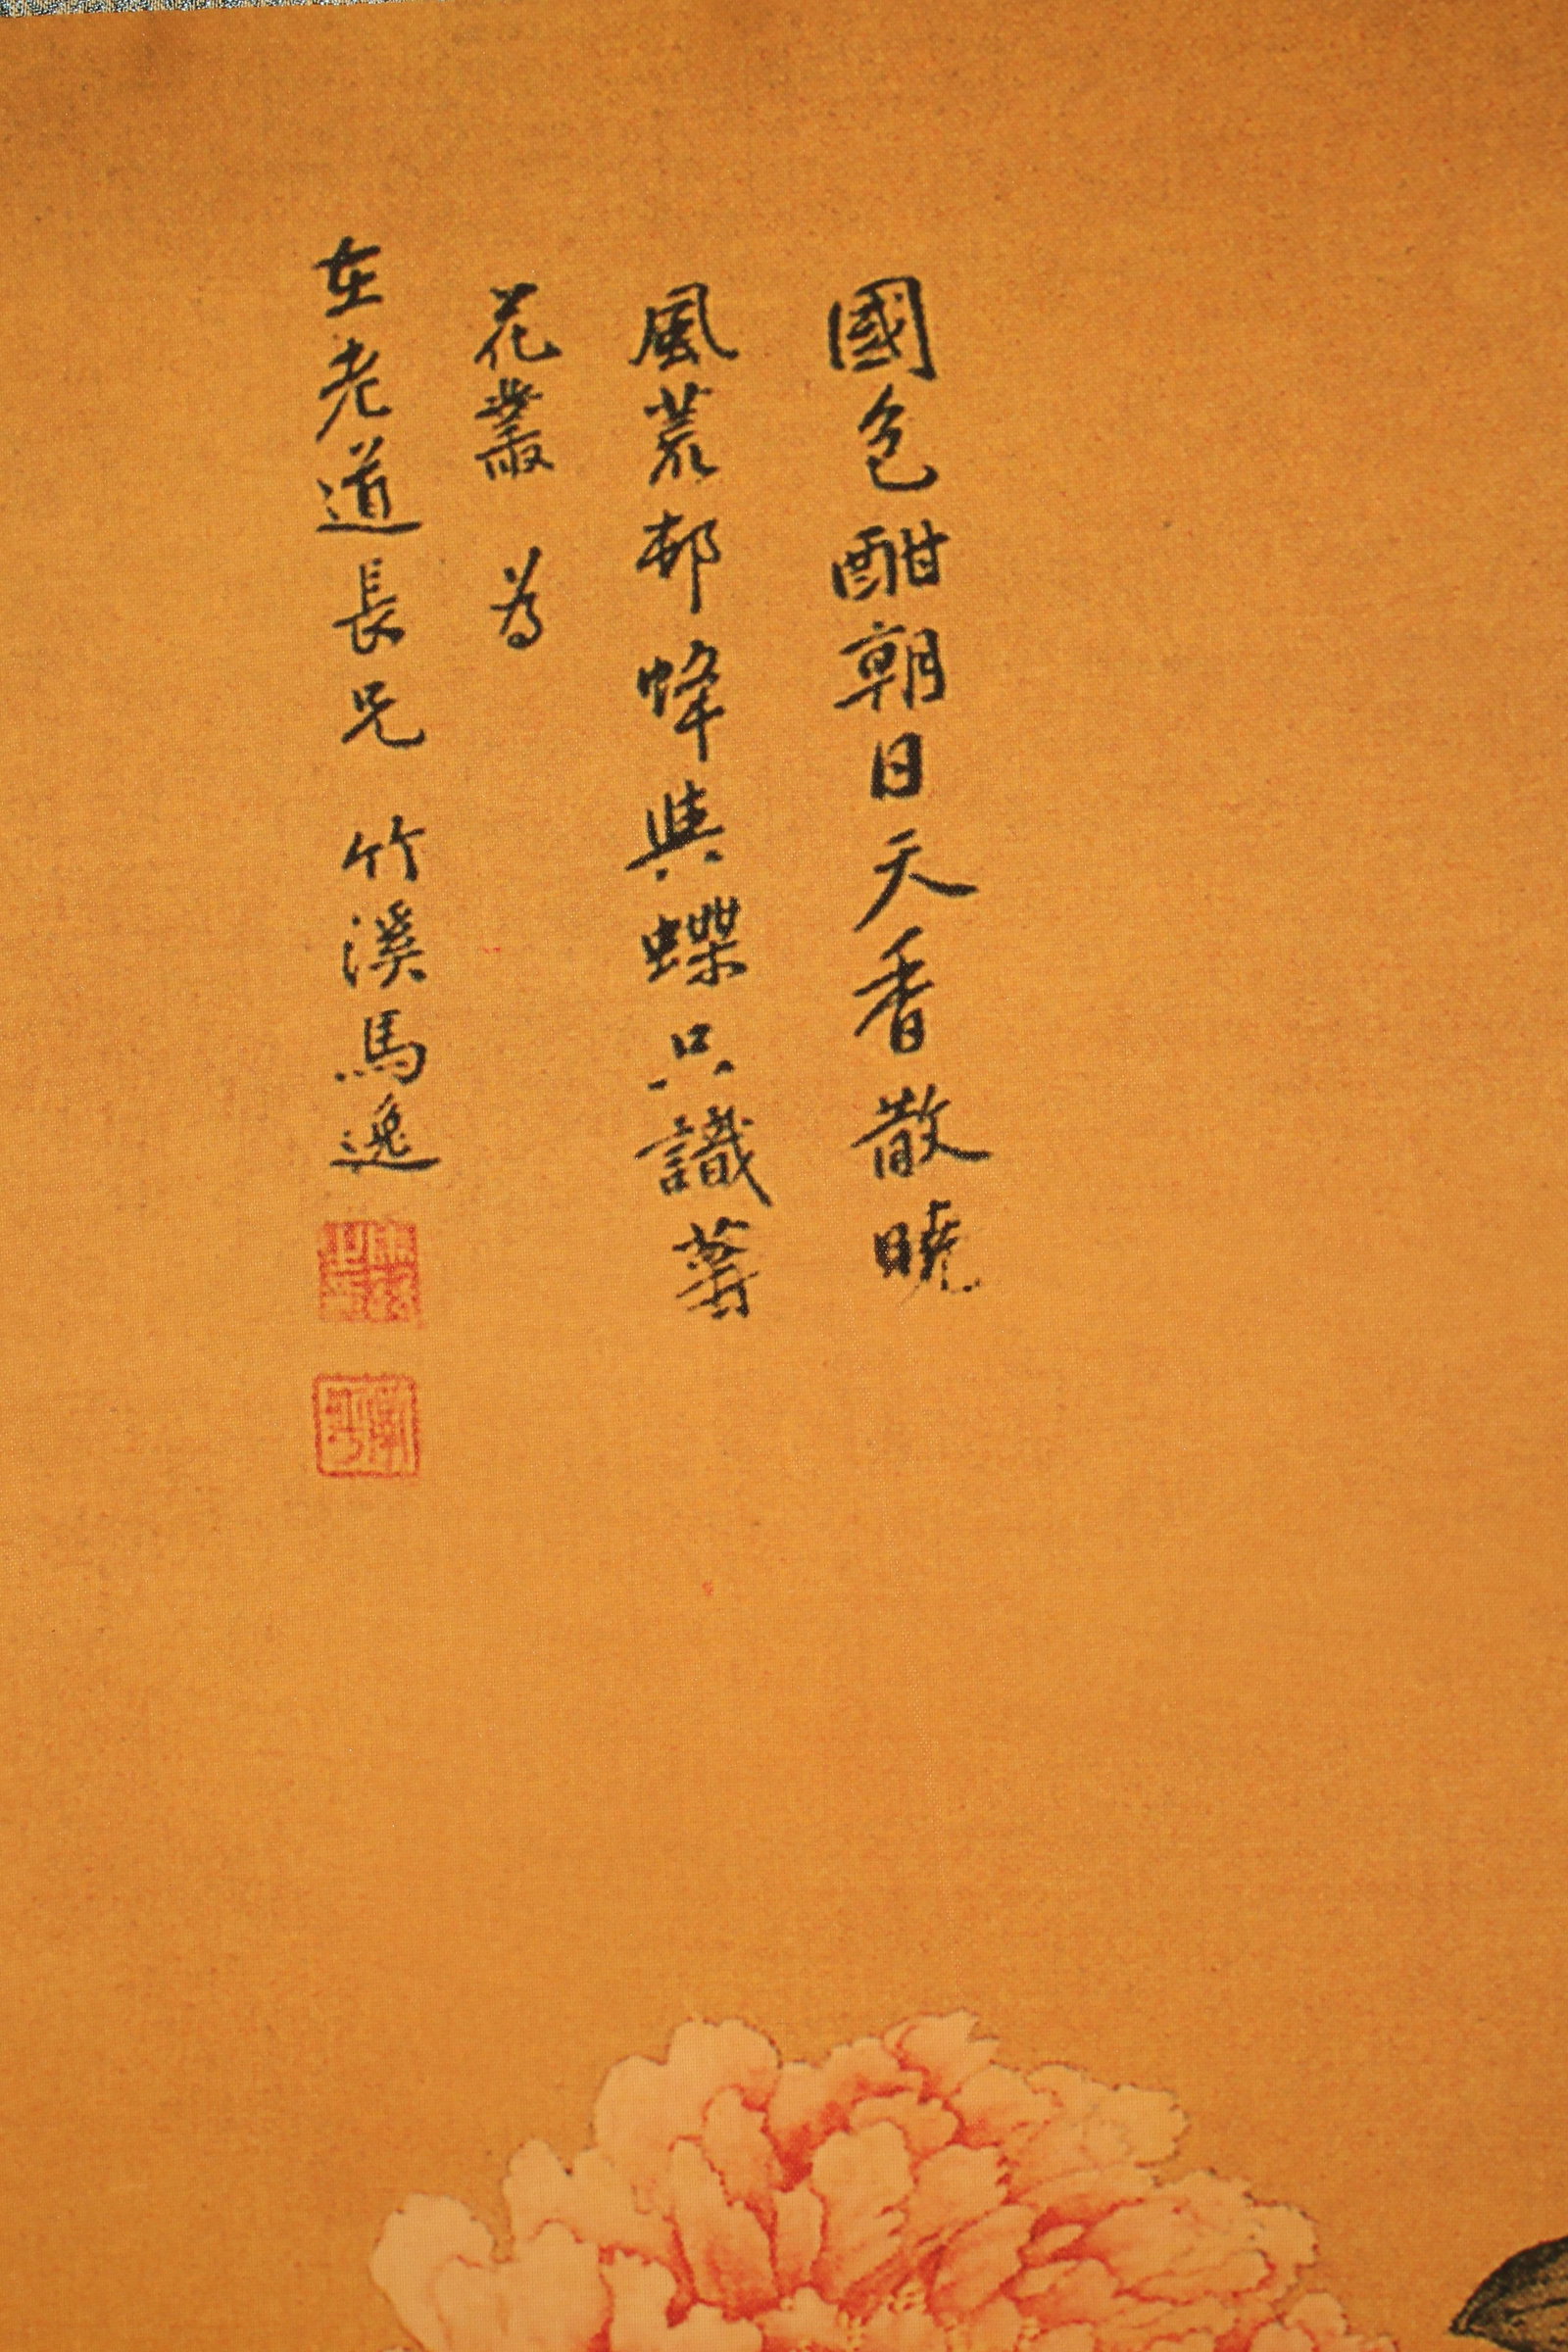 國色酣朝日天香散曉
風荒邨蜂與蝶只識蓦
花叢 為
在老道長兄 竹溪馬逸